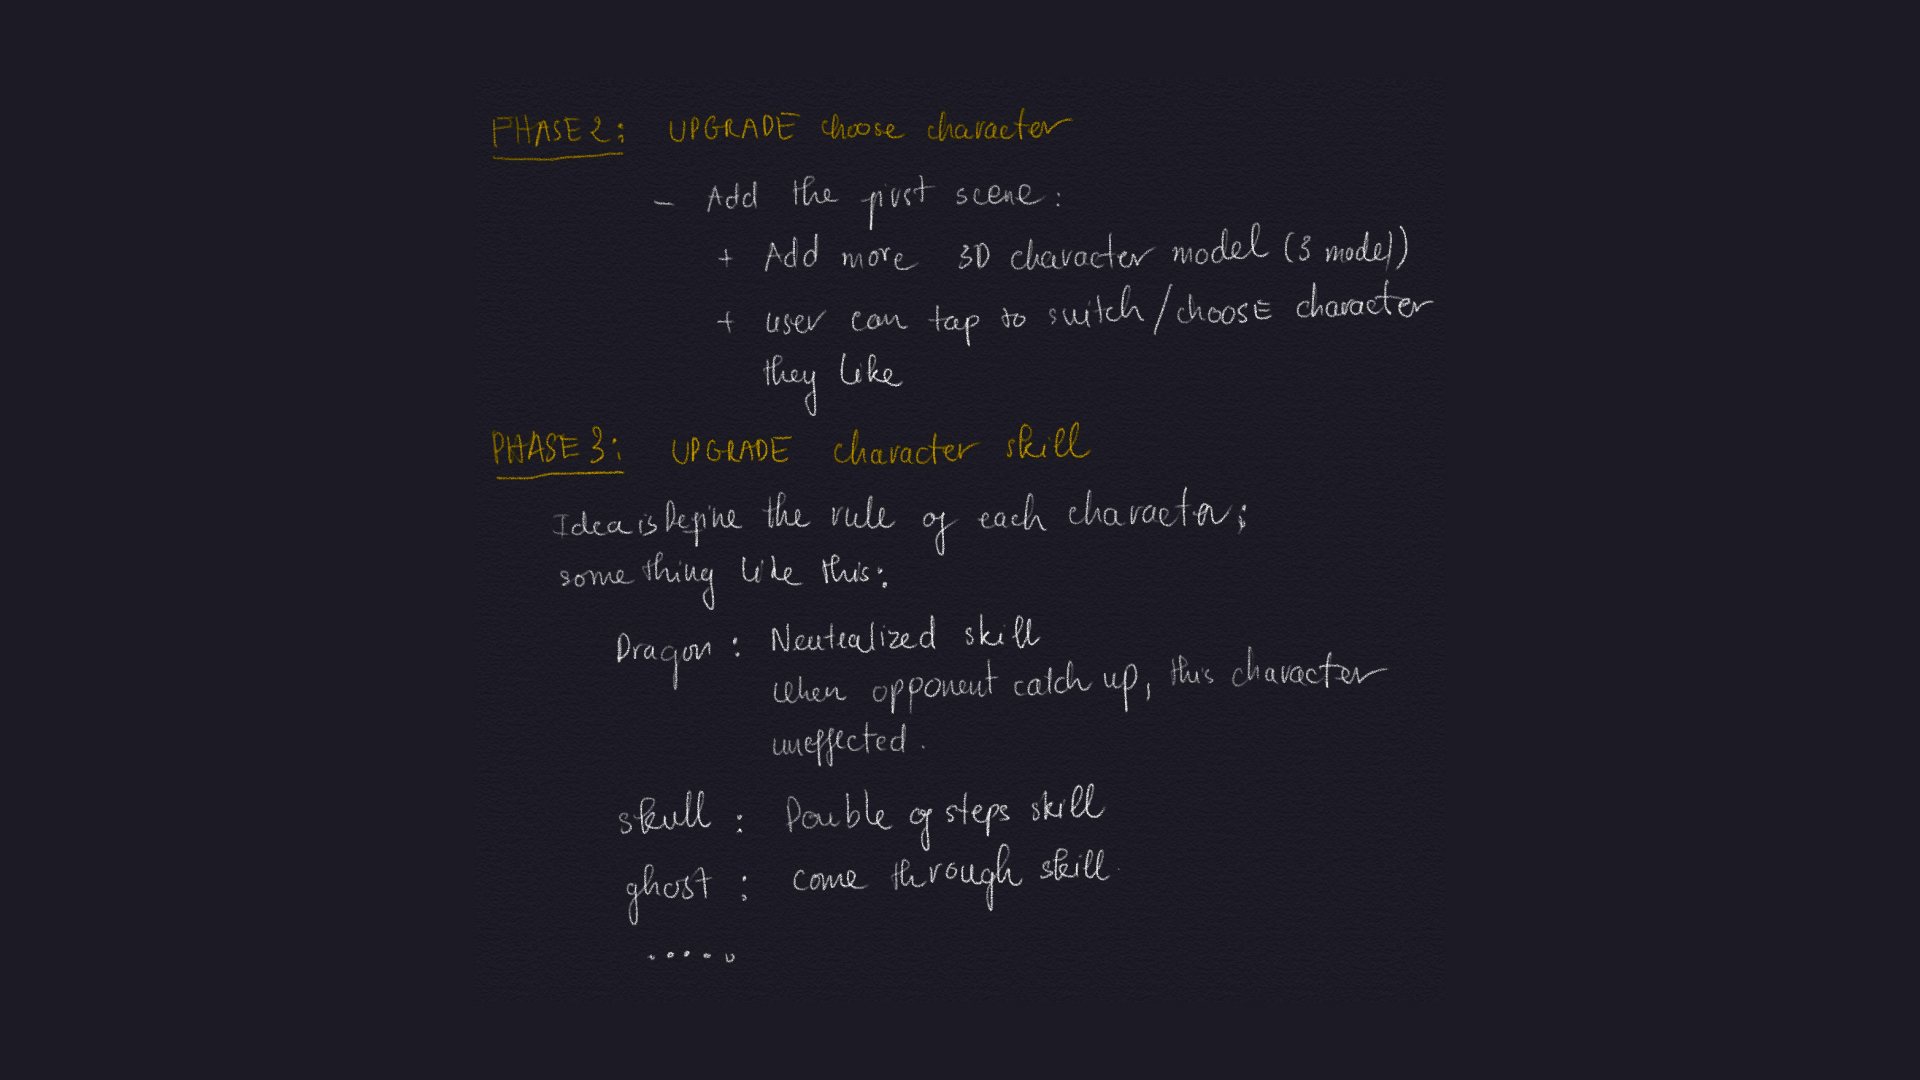 PHASE 2: UPGRADE choose character
- Add the first scene:
+ Add more 3D character model (3 model)
+ user can tap to switch/choose character
they like
PHASE 3: UPGRADE character skill
Idea is Define the rule of each character;
something like this:
Dragon: Neutealized skill
When opponent catch up, this character
uneffected.
skull: Double of steps skill
ghost: come through skill.
.....